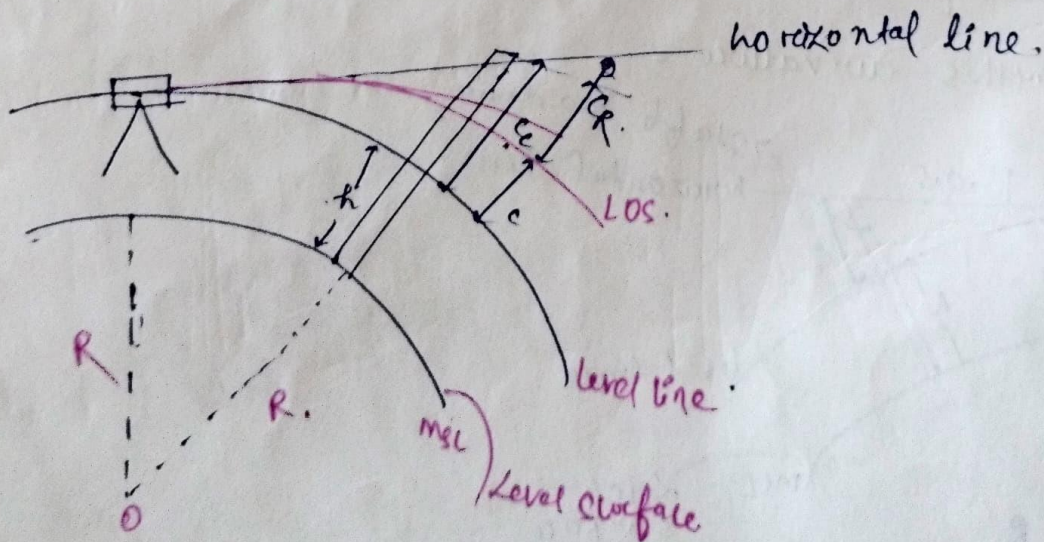 horizontal line.
C_R.
h
C_c
c
LOS.
R
R.
Level line.
MSL
Level surface
O